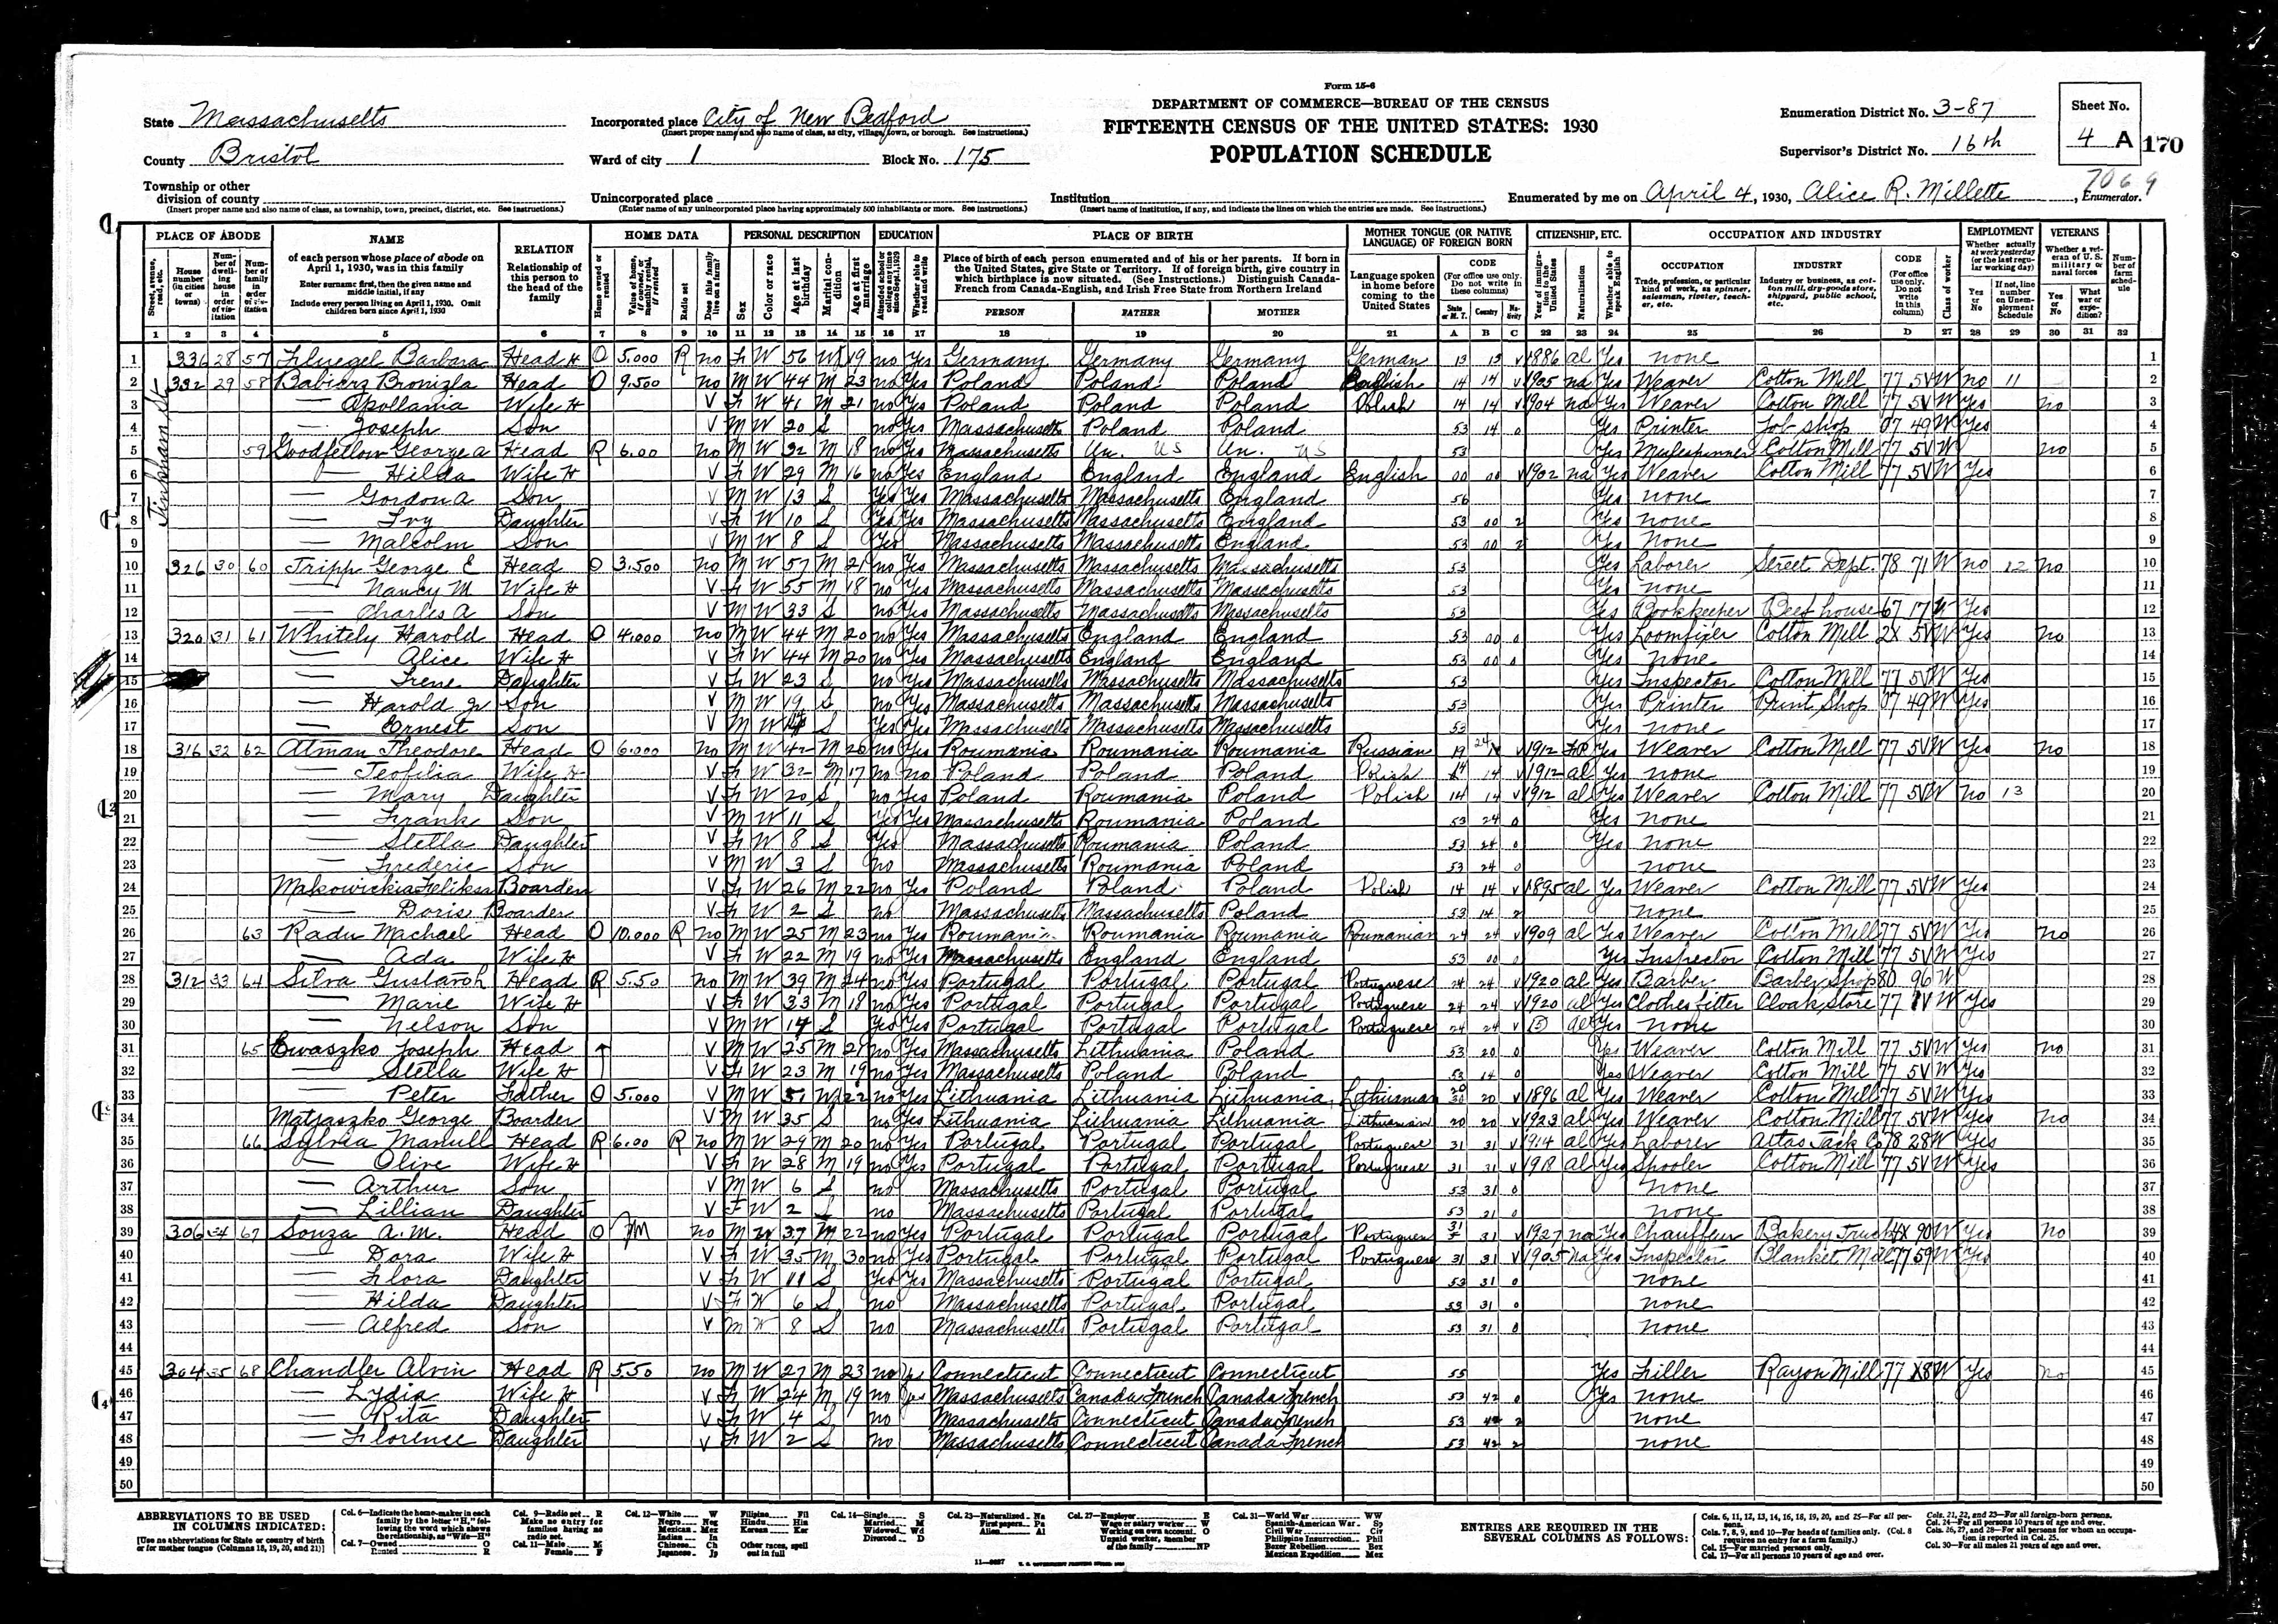 Form 15-6
State Massachusetts
Incorporated place City of New Bedford
(Insert proper name and also name of class, as city, village, town, or borough. See instructions.)
DEPARTMENT OF COMMERCE—BUREAU OF THE CENSUS
FIFTEENTH CENSUS OF THE UNITED STATES: 1930
POPULATION SCHEDULE
Enumeration District No. 3-87
Sheet No.
4 A
170
County Bristol
Ward of city 1 Block No. 175
Supervisor's District No. 16th
7069
Township or other division of county
(Insert proper name and also name of class, as township, town, precinct, district, etc. See instructions.)
Unincorporated place
(Enter name of any unincorporated place having approximately 500 inhabitants or more. See instructions.)
Institution
(Insert name of institution, if any, and indicate the lines on which the entries are made. See instructions.)
Enumerated by me on April 4, 1930, Alice R. Millette, Enumerator.
PLACE OF ABODE NAME RELATION HOME DATA PERSONAL DESCRIPTION EDUCATION PLACE OF BIRTH MOTHER TONGUE (OR NATIVE LANGUAGE) OF FOREIGN BORN CITIZENSHIP, ETC. OCCUPATION AND INDUSTRY EMPLOYMENT VETERANS
Tinkham St.
1 336 28 57 Fluegel Barbara Head H O 5.000 R no F W 56 Wd 19 no Yes Germany Germany Germany German 13 13 V 1886 al Yes none 1
2 332 29 58 Babierz Bronizla Head O 9.500 no M W 44 M 23 no Yes Poland Poland Poland 14 14 V 1905 na Yes Weaver Cotton Mill 77 5V W no 11 2
3 — Apollania Wife H V F W 41 M 21 no Yes Poland Poland Poland Polish 14 14 V 1904 na Yes Weaver Cotton Mill 77 5V W Yes no 3
4 — Joseph Son V M W 20 S no Yes Massachusetts Poland Poland 53 14 0 Yes Printer Job shop 07 49 W Yes 4
5 59 Goodfellow George A Head R 6.00 no M W 32 M 18 no Yes Massachusetts Un. US Un. US 53 Yes Mulespinner Cotton Mill 77 5V W no 5
6 — Hilda Wife H V F W 29 M 16 no Yes England England England English 00 00 V 1902 na Yes Weaver Cotton Mill 77 5V W Yes 6
7 — Gordon A Son V M W 13 S Yes Yes Massachusetts Massachusetts England 56 Yes none 7
8 — Ivy Daughter V F W 10 S Yes Yes Massachusetts Massachusetts England 53 00 2 Yes none 8
9 — Malcolm Son V M W 8 S Yes Massachusetts Massachusetts England 53 00 2 Yes none 9
10 326 30 60 Tripp George E Head O 3.500 no M W 57 M 21 no Yes Massachusetts Massachusetts Massachusetts 53 Yes Laborer Street Dept. 78 71 W no 12 no 10
11 — Nancy M Wife H V F W 55 M 18 no Yes Massachusetts Massachusetts Massachusetts 53 Yes none 11
12 — Charles A Son V M W 33 S no Yes Massachusetts Massachusetts Massachusetts 53 Yes Bookkeeper Beef house 67 17 W Yes 12
13 320 31 61 Whitely Harold Head O 4.000 no M W 44 M 20 no Yes Massachusetts England England 53 00 0 Yes Loomfixer Cotton Mill 2X 5V W Yes no 13
14 — Alice Wife H V F W 44 M 20 no Yes Massachusetts England England 53 00 0 Yes none 14
15 — Irene Daughter V F W 23 S no Yes Massachusetts Massachusetts Massachusetts 53 Yes Inspector Cotton Mill 77 5V W Yes 15
16 — Harold Jr Son V M W 19 S no Yes Massachusetts Massachusetts Massachusetts 53 Yes Printer Print Shop 07 49 W Yes 16
17 — Ernest Son V M W 14 S Yes Yes Massachusetts Massachusetts Massachusetts 53 Yes none 17
18 316 32 62 Atman Theodore Head O 6.000 no M W 42 M 20 no Yes Roumania Roumania Roumania Russian 19 24 V 1912 Yes Weaver Cotton Mill 77 5V W Yes no 18
19 — Teofilia Wife H V F W 32 M 17 no no Poland Poland Poland Polish 14 14 V 1912 al Yes none 19
20 — Mary Daughter V F W 20 S no Yes Poland Roumania Poland Polish 14 14 V 1912 al Yes Weaver Cotton Mill 77 5V W no 13 20
21 — Frank Son V M W 11 S Yes Yes Massachusetts Roumania Poland 53 24 0 Yes none 21
22 — Stella Daughter V F W 8 S Yes Massachusetts Roumania Poland 53 24 0 Yes none 22
23 — Frederic Son V M W 3 S no Massachusetts Roumania Poland 53 24 0 none 23
24 Makowickia Feliksa Boarder V F W 26 M 22 no Yes Poland Poland Poland Polish 14 14 V 1895 al Yes Weaver Cotton Mill 77 5V W Yes 24
25 — Doris Boarder V F W 2 S no Massachusetts Massachusetts Poland 53 14 2 none 25
26 63 Radu Machael Head O 10.000 R no M W 25 M 23 no Yes Roumania Roumania Roumania Roumanian 24 24 V 1909 al Yes Weaver Cotton Mill 77 5V W Yes no 26
27 — Ada Wife H V F W 22 M 19 no Yes Massachusetts England England 53 00 0 Yes Inspector Cotton Mill 77 5V W Yes 27
28 312 33 64 Silva Gustavoh Head R 5.50 no M W 39 M 24 no Yes Portugal Portugal Portugal Portuguese 24 24 V 1920 al Yes Barber Barber Shop 80 96 W 28
29 — Marie Wife H V F W 33 M 18 no Yes Portugal Portugal Portugal Portuguese 24 24 V 1920 al Yes Clothes fitter Cloak Store 77 1V W Yes 29
30 — Nelson Son V M W 14 S Yes Yes Portugal Portugal Portugal Portuguese 24 24 V al Yes none 30
31 65 Ewaszko Joseph Head V M W 25 M 21 no Yes Massachusetts Lithuania Poland 53 20 0 Yes Weaver Cotton Mill 77 5V W Yes no 31
32 — Stella Wife H V F W 23 M 19 no Yes Massachusetts Poland Poland 53 14 0 Yes Weaver Cotton Mill 77 5V W Yes 32
33 Peter Father O 5.000 V M W 51 Wd 22 no Yes Lithuania Lithuania Lithuania Lithuanian 20 20 V 1896 al Yes Weaver Cotton Mill 77 5V W Yes 33
34 Matraszko George Boarder V M W 35 S no Yes Lithuania Lithuania Lithuania Lithuanian 20 20 V 1923 al Yes Weaver Cotton Mill 77 5V W Yes no 34
35 66 Sylvia Manull Head R 6.00 R no M W 29 M 20 no Yes Portugal Portugal Portugal Portuguese 31 31 V 1914 al Yes Laborer Atlas Tack Co 78 28 W Yes 35
36 — Olive Wife H V F W 28 M 19 no Yes Portugal Portugal Portugal Portuguese 31 31 V 1918 al Yes Spooler Cotton Mill 77 5V W Yes 36
37 — Arthur Son V M W 6 S no Massachusetts Portugal Portugal 53 31 0 none 37
38 — Lillian Daughter V F W 2 S no Massachusetts Portugal Portugal 53 21 0 none 38
39 306 34 67 Souza A.M. Head O no M W 37 M 22 no Yes Portugal Portugal Portugal Portuguese 31 31 V 1927 na Yes Chauffeur Bakery Truck 4X 90 W Yes no 39
40 — Dora Wife H V F W 35 M 30 no Yes Portugal Portugal Portugal Portuguese 31 31 V 1905 na Yes Inspector Blanket Mill 77 59 W Yes 40
41 — Flora Daughter V F W 11 S Yes Yes Massachusetts Portugal Portugal 53 31 0 none 41
42 — Hilda Daughter V F W 6 S no Massachusetts Portugal Portugal 53 31 0 none 42
43 — Alfred Son V M W 8 S no Massachusetts Portugal Portugal 53 31 0 none 43
44 44
45 304 35 68 Chandler Alvin Head R 5.50 no M W 27 M 23 no Yes Connecticut Connecticut Connecticut 55 Yes Filler Rayon Mill 77 X8 W Yes no 45
46 — Lydia Wife H V F W 24 M 19 no Yes Massachusetts Canada French Canada French 53 42 0 Yes none 46
47 — Rita Daughter V F W 4 S no Massachusetts Connecticut Canada French 53 42 2 none 47
48 — Florence Daughter V F W 2 S no Massachusetts Connecticut Canada French 53 42 2 none 48
49 49
50 50
ABBREVIATIONS TO BE USED IN COLUMNS INDICATED:
[Use no abbreviations for State or country of birth or for mother tongue (Columns 18, 19, 20, and 21)]
ENTRIES ARE REQUIRED IN THE SEVERAL COLUMNS AS FOLLOWS: